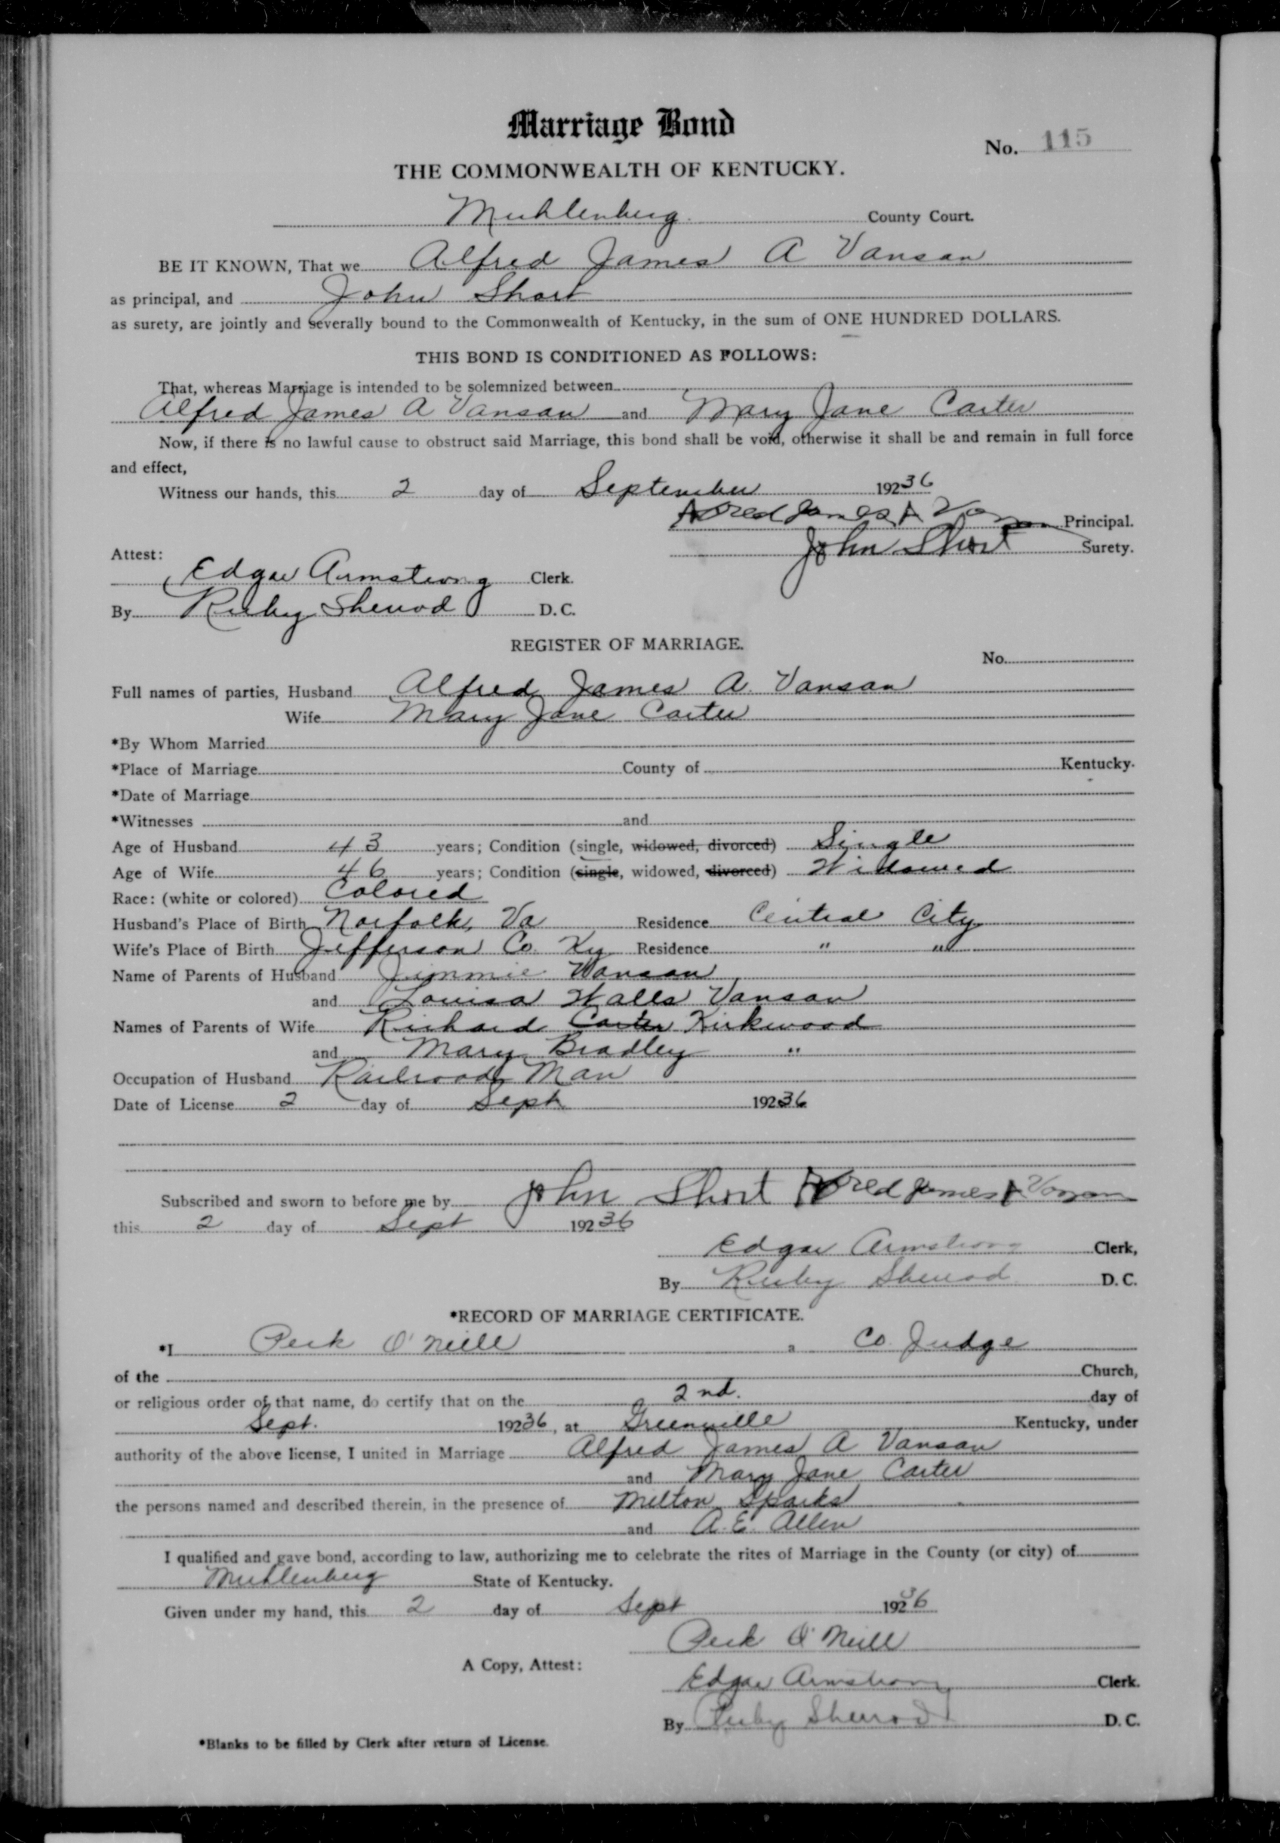 Marriage Bond
No. 115
THE COMMONWEALTH OF KENTUCKY.
Muhlenberg County Court.
BE IT KNOWN, That we Alfred James A Vansan
as principal, and John Short
as surety, are jointly and severally bound to the Commonwealth of Kentucky, in the sum of ONE HUNDRED DOLLARS.
THIS BOND IS CONDITIONED AS FOLLOWS:
That, whereas Marriage is intended to be solemnized between
Alfred James A Vansan and Mary Jane Carter
Now, if there is no lawful cause to obstruct said Marriage, this bond shall be void, otherwise it shall be and remain in full force
and effect,
Witness our hands, this 2 day of September 19236
James A Principal.
John Short Surety.
Attest:
Edgar Armstrong Clerk.
By Ruby Sherrod D.C.
REGISTER OF MARRIAGE.
No.
Full names of parties, Husband Alfred James A. Vansan
Wife Mary Jane Carter
*By Whom Married
*Place of Marriage County of Kentucky.
*Date of Marriage
*Witnesses and
Age of Husband 43 years; Condition (single, widowed, divorced) Single
Age of Wife 46 years; Condition (single, widowed, divorced) Widowed
Race: (white or colored) Colored
Husband's Place of Birth Norfolk, Va Residence Central City
Wife's Place of Birth Jefferson Co. Ky Residence " "
Name of Parents of Husband Jimmie Vansan
and Louisa Walls Vansan
Names of Parents of Wife Richard Carter Kirkwood
and Mary Bradley "
Occupation of Husband Railroad Man
Date of License 2 day of Sept 19236
Subscribed and sworn to before me by John Short James A
this 2 day of Sept 19236
Edgar Armstrong Clerk,
By Ruby Sherrod D.C.
*RECORD OF MARRIAGE CERTIFICATE.
*I Peck O'Neill a Co. Judge
of the Church,
or religious order of that name, do certify that on the 2nd. day of
Sept. 19236, at Greenville Kentucky, under
authority of the above license, I united in Marriage Alfred James A Vansan
and Mary Jane Carter
the persons named and described therein, in the presence of Milton Sparks
and A. E. Allen
I qualified and gave bond, according to law, authorizing me to celebrate the rites of Marriage in the County (or city) of
Muhlenberg State of Kentucky.
Given under my hand, this 2 day of Sept 19236
Peck O'Neill
A Copy, Attest:
Edgar Armstrong Clerk.
By Ruby Sherrod D.C.
*Blanks to be filled by Clerk after return of License.